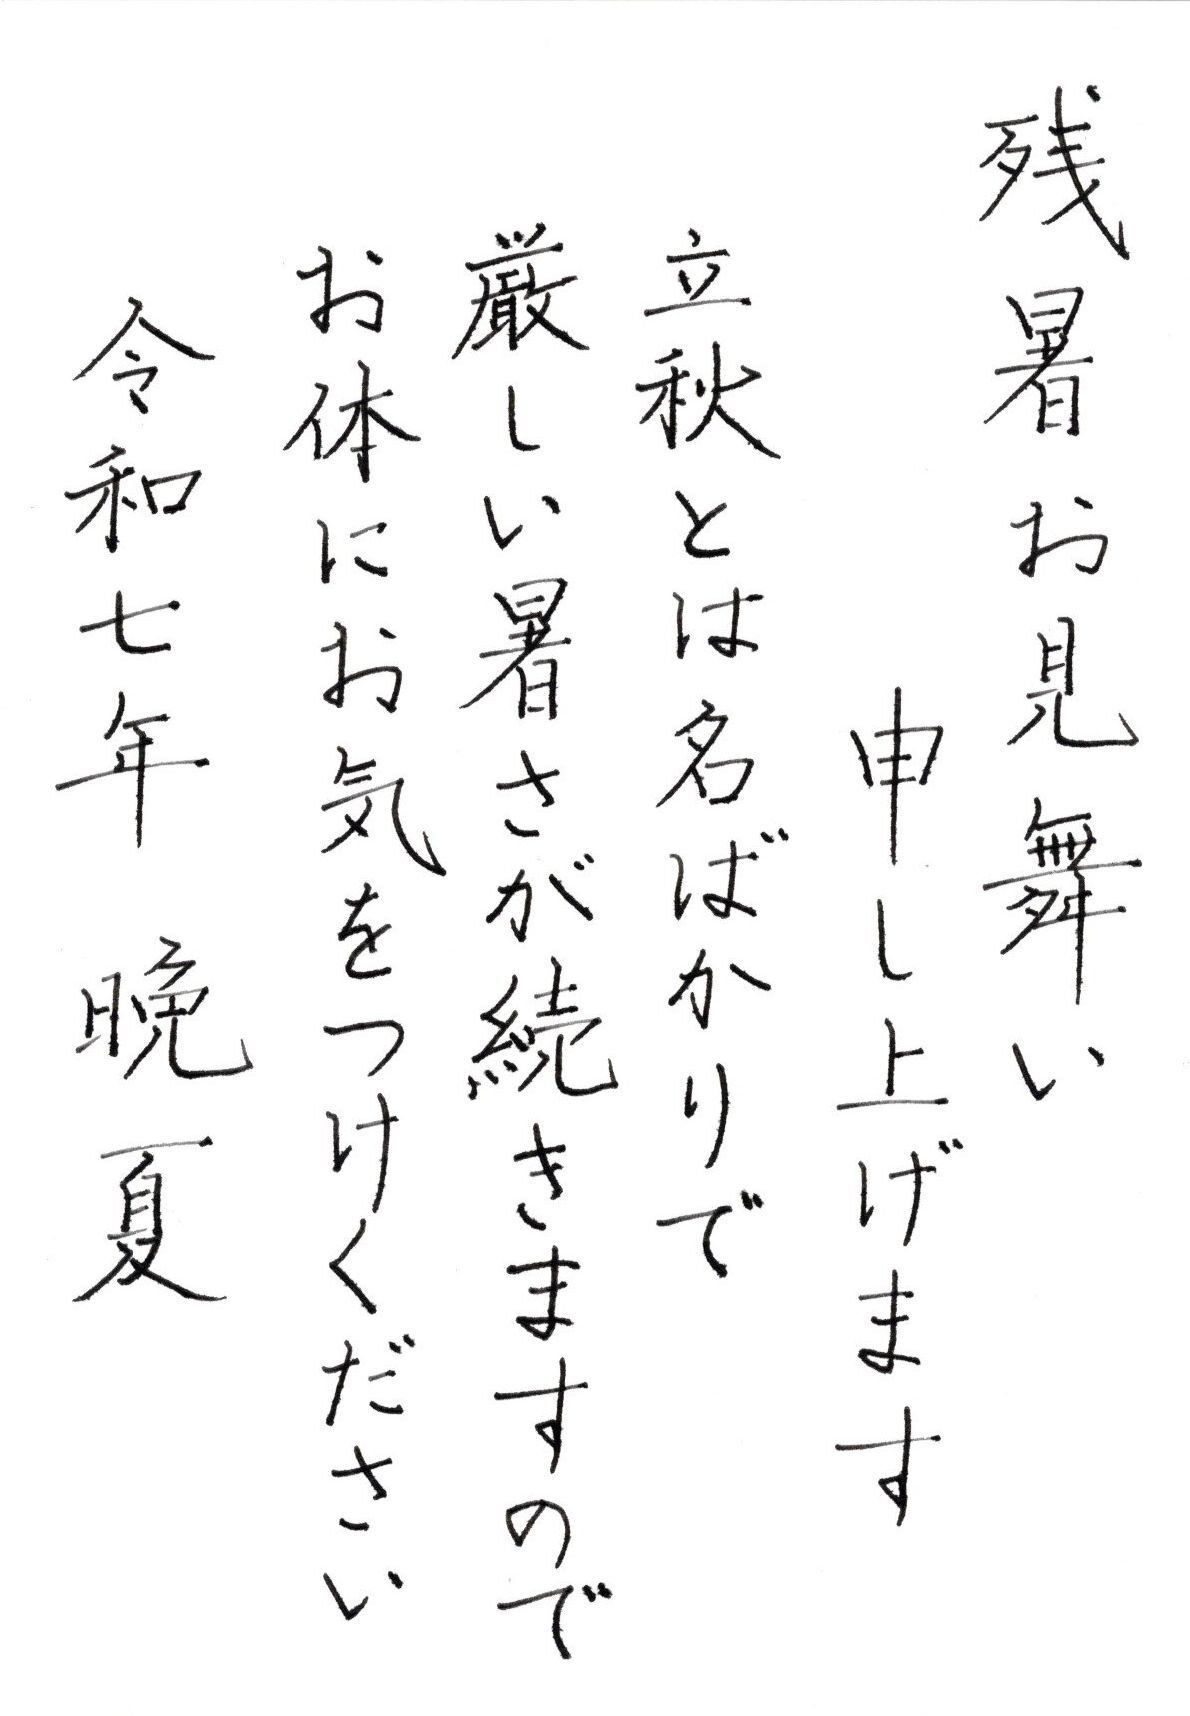 残暑お見舞い
申し上げます
立秋とは名ばかりで
厳しい暑さが続きますので
お体にお気をつけください
令和七年 晩夏